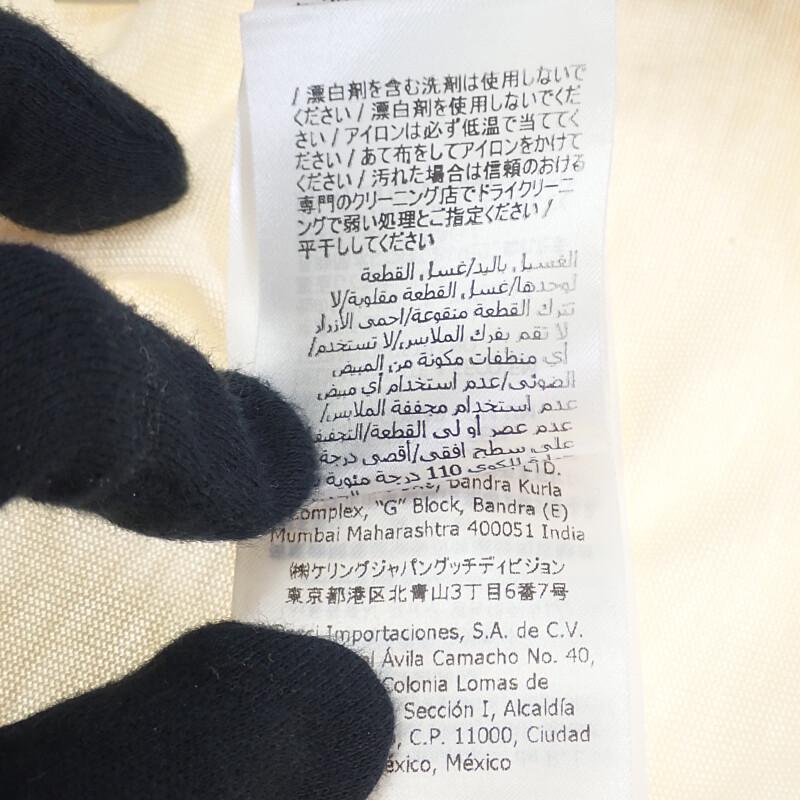 / 漂白剤を含む洗剤は使用しないで
ください / 漂白剤を使用しないでくだ
さい / アイロンは必ず低温で当ててく
ださい / あて布をしてアイロンをかけて
ください / 汚れた場合は信頼のおける
専門のクリーニング店でドライクリーニ
ングで弱い処理とご指定ください /
平干ししてください
الغسيل باليد/غسل القطعة
لوحدها/غسل القطعة مقلوبة/لا
تترك القطعة منقوعة/احمى الأزرار
لا تقم بفرك الملابس/لا تستخدم/
أي منظفات مكونة من المبيض
الضوئى/عدم استخدام أي مبيض
عدم استخدام مجففة الملابس/
عدم عصر أو لى القطعة/التجفيف
على سطح افقى/أقصى درجة
110 درجة مئوية
Bandra Kurla
Complex, "G" Block, Bandra (E)
Mumbai Maharashtra 400051 India
㈱ケリングジャパングッチディビジョン
東京都港区北青山3丁目6番7号
Importaciones, S.A. de C.V.
Ávila Camacho No. 40,
Colonia Lomas de
Sección I, Alcaldía
, C.P. 11000, Ciudad
México, México